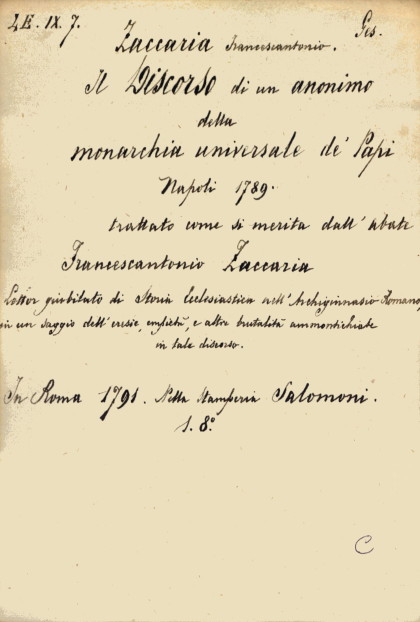 4E. IX. 7.
Ges.
Zaccaria Francescantonio.
Il Discorso di un anonimo
della
monarchia universale de' Papi
Napoli 1789.
trattato come si merita dall' abate
Francescantonio Zaccaria
Lettor giubilato di Storia Ecclesiastica nell' Archiginnasio Romano,
in un saggio dell' eresie, empietà, e altre brutalità ammontichiate
in tale discorso.
In Roma 1791. Nella Stamperia Salomoni.
1. 8.º
C